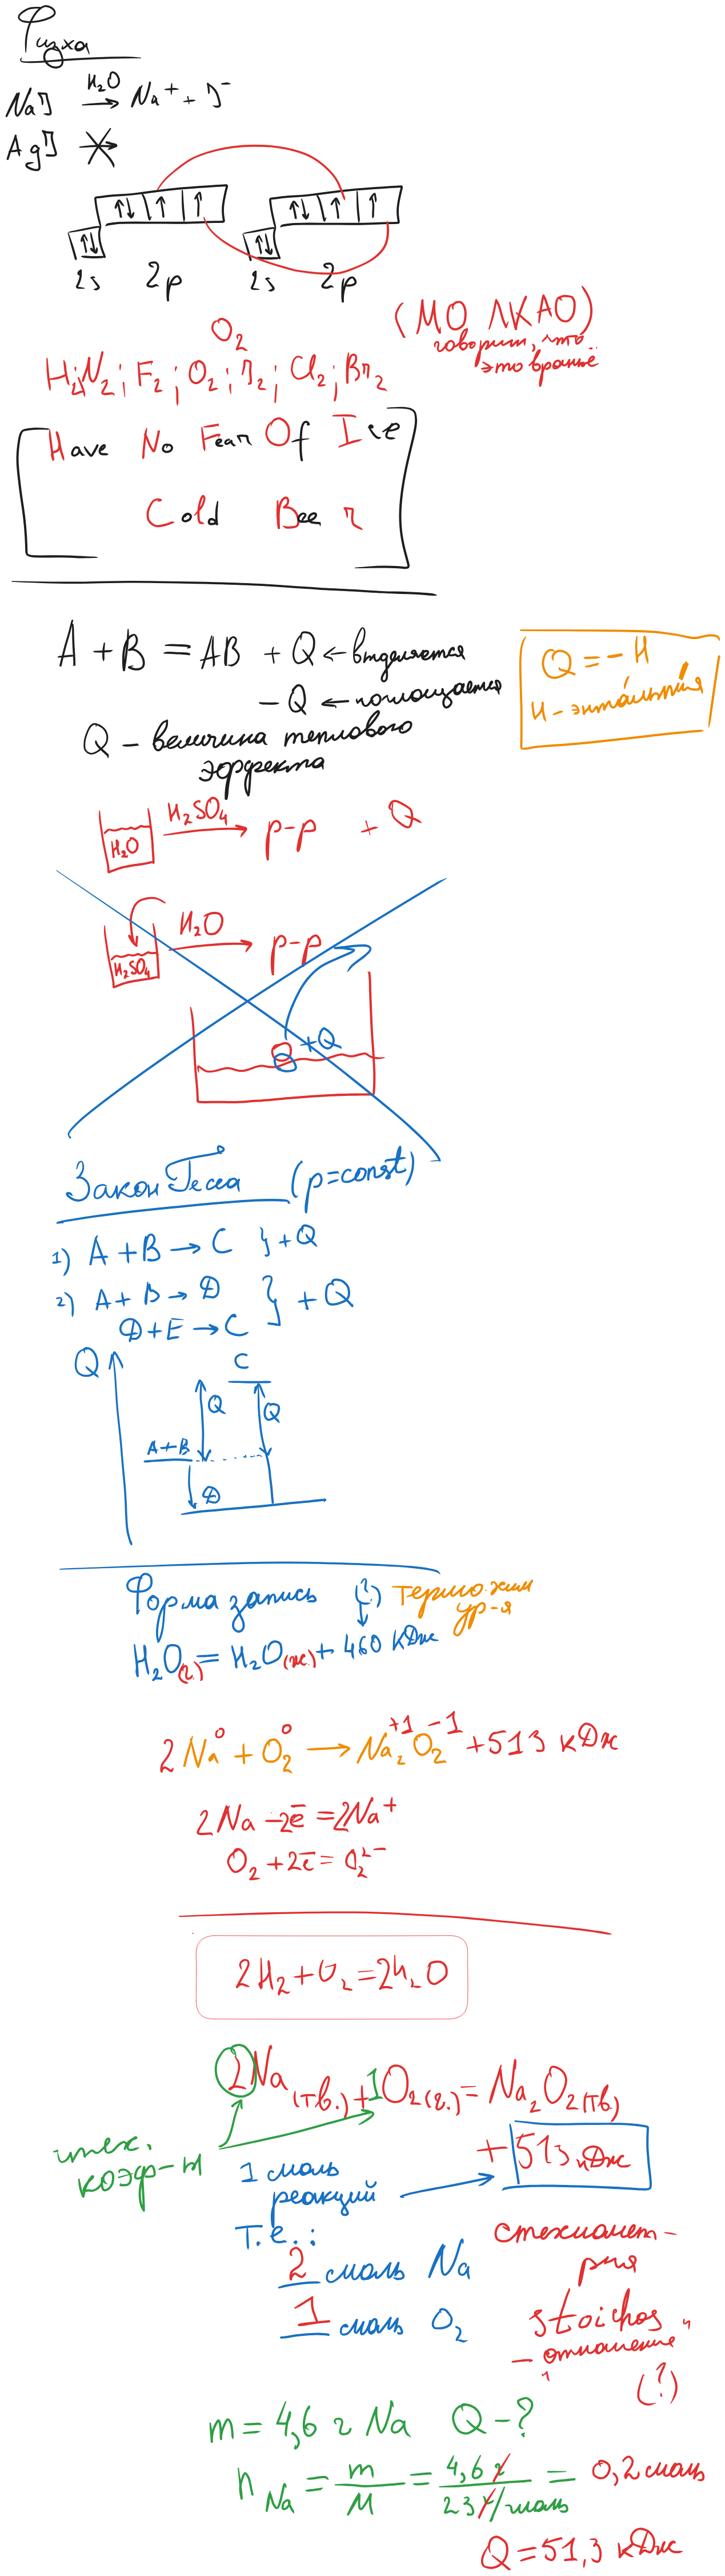 Физха
NaJ H₂O → Na⁺ + J⁻
AgJ →
↑↓ ↑ ↑ ↑↓ ↑ ↑
↑↓ ↑↓
2s 2p 2s 2p
O₂
(МО ЛКАО)
говорит, что
это враньё
H₂; N₂; F₂; O₂; J₂; Cl₂; Br₂
Have No Fear Of Ice
Cold Beer
A + B = AB + Q ← выделяется
− Q ← поглощается
Q – величина теплового
эффекта
Q = − H
H – энтальпия
H₂O H₂SO₄ → р-р + Q
H₂SO₄ H₂O → р-р
+Q
Закон Гесса (p=const)
1) A + B → C } +Q
2) A + B → D } + Q
D + E → C
Q
C
Q Q
A+B
D
Форма запись (?) термохим
ур-я
H₂O(г.) = H₂O(ж.) + 460 кДж
2Na⁰ + O₂⁰ → Na₂⁺¹O₂⁻¹ + 513 кДж
2Na − 2ē = 2Na⁺
O₂ + 2ē = O₂²⁻
2H₂ + O₂ = 2H₂O
2Na(тв.) + 1O₂(г.) = Na₂O₂(тв.)
+ 513 кДж
стех.
коэф-ы
1 моль
реакций
т.е.:
2 моль Na
1 моль O₂
стехиомет-
рия
stoichos
– "отношение"
(?)
m = 4,6 г Na Q – ?
n Na = m/M = 4,6 г / 23 г/моль = 0,2 моль
Q = 51,3 кДж